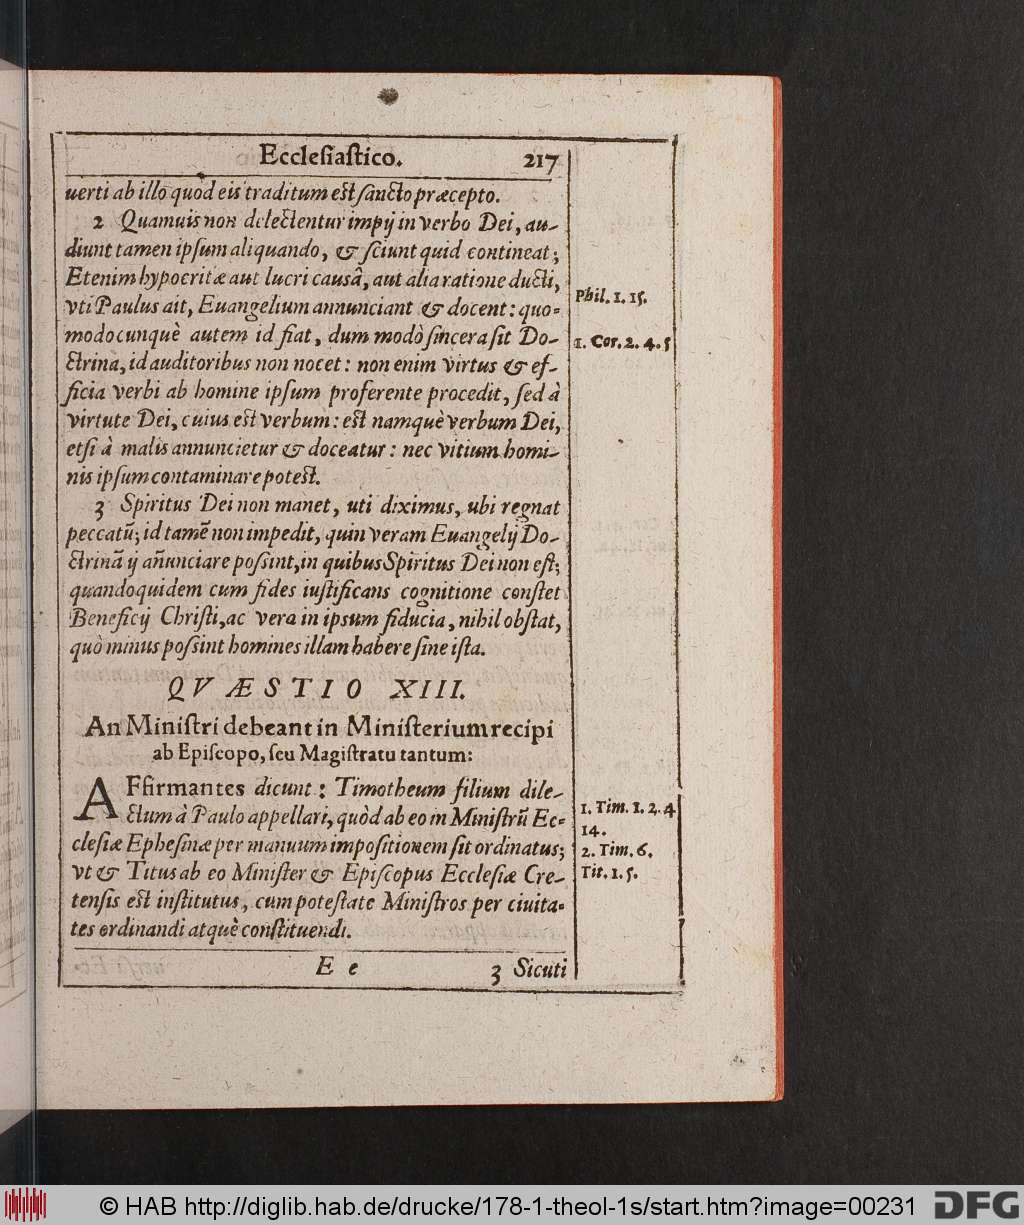 Eccleſiaſtico. 217
uerti ab illo quòd eis traditum eſt ſancto præcepto.
2 Quamuis non delectentur impij in verbo Dei, au-
diunt tamen ipſum aliquando, & ſciunt quid contineat;
Etenim hypocritæ aut lucri causâ, aut alia ratione ducti,
vti Paulus ait, Euangelium annunciant & docent: quo-
modocunquè autem id fiat, dum modò ſincera ſit Do-
ctrina, id auditoribus non nocet: non enim virtus & ef-
ficia verbi ab homine ipſum proferente procedit, ſed à
virtute Dei, cuius eſt verbum: eſt namquè verbum Dei,
etſi à malis annuncietur & doceatur: nec vitium homi-
nis ipſum contaminare poteſt.
3 Spiritus Dei non manet, uti diximus, ubi regnat
peccatū; id tamē non impedit, quin veram Euangelij Do-
ctrinā ij añunciare poſsint, in quibus Spiritus Dei non eſt;
quandoquidem cum fides iuſtificans cognitione conſtet
Beneficij Chriſti, ac vera in ipsum fiducia, nihil obſtat,
quò minus poſsint homines illam habere ſine iſta.
Phil. 1. 15.
1. Cor. 2. 4. 5
QVÆSTIO XIII.
An Miniſtri debeant in Miniſterium recipi
ab Epiſcopo, ſeu Magiſtratu tantum:
AFfirmantes dicunt: Timotheum filium dile-
ctum à Paulo appellari, quòd ab eo in Miniſtrū Ec-
cleſiæ Epheſinæ per manuum impoſitionem ſit ordinatus;
vt & Titus ab eo Miniſter & Epiſcopus Eccleſiæ Cre-
tenſis eſt inſtitutus, cum poteſtate Miniſtros per ciuita-
tes ordinandi atquè conſtituendi.
1. Tim. 1. 2. 4
14.
2. Tim. 6.
Tit. 1. 5.
E e 3 Sicuti
© HAB http://diglib.hab.de/drucke/178-1-theol-1s/start.htm?image=00231 DFG